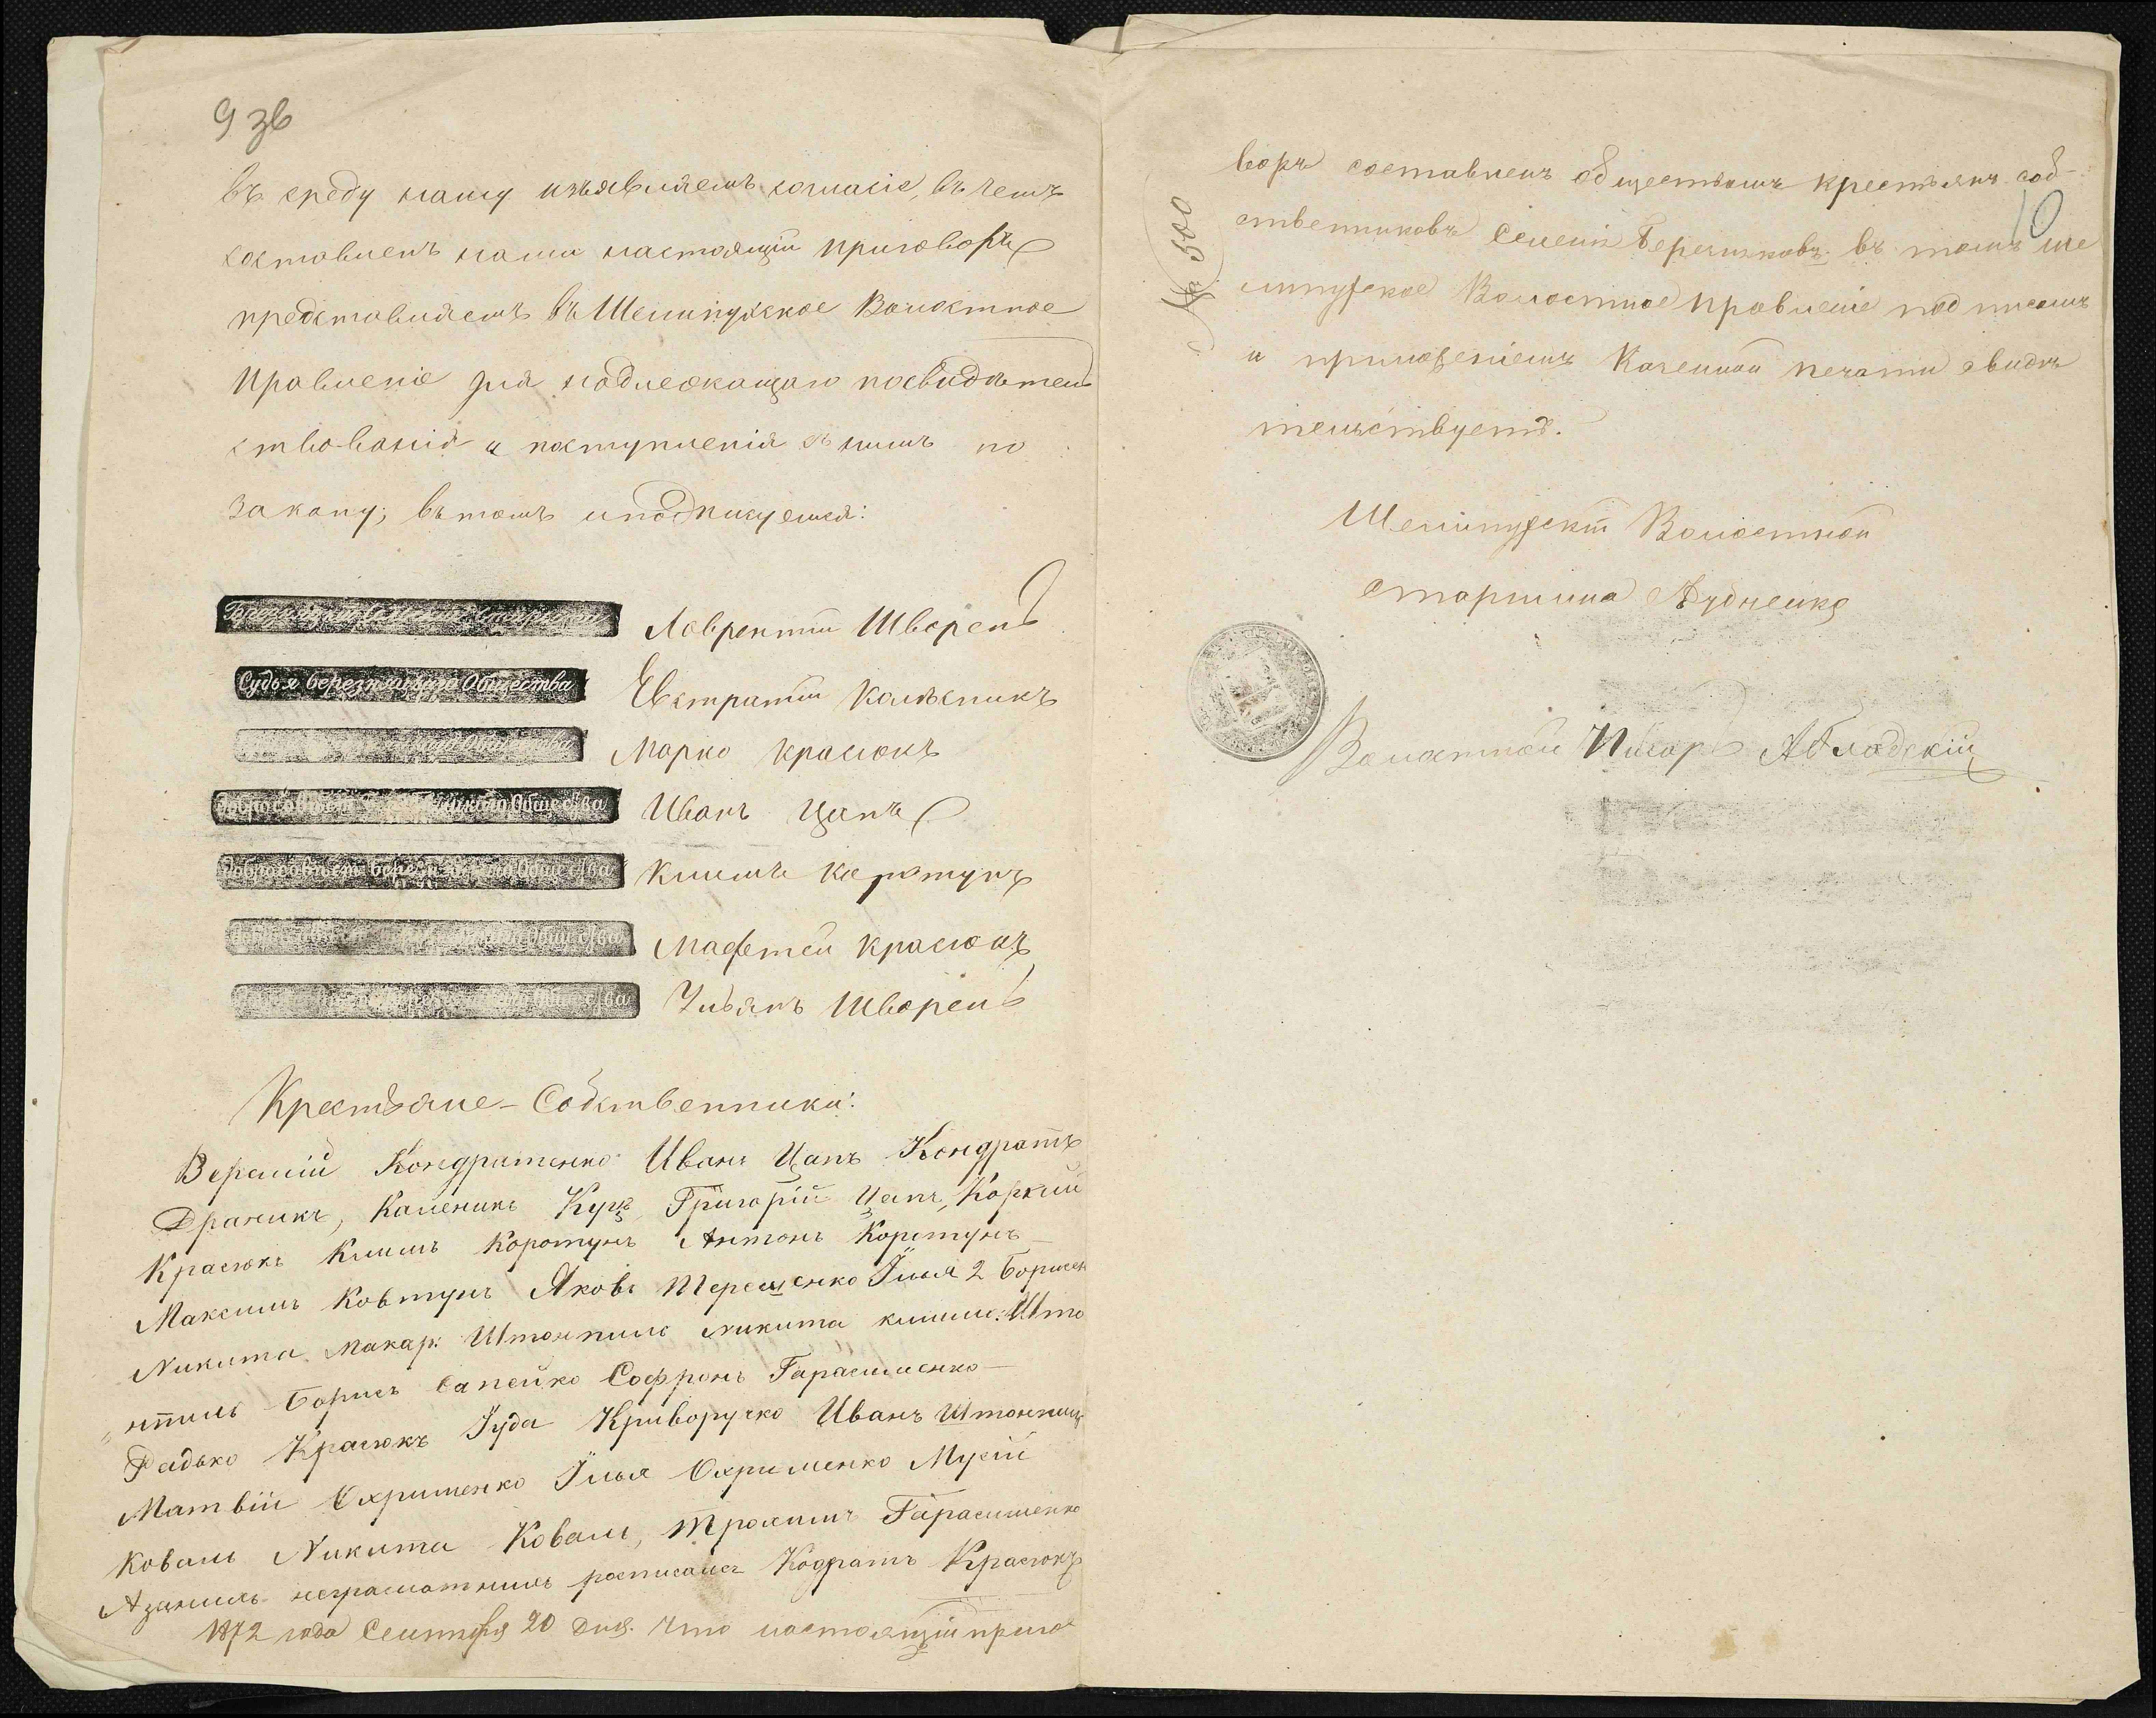 9 зв
въ среду нашу изъявляемъ согласіе, въ чемъ
составленъ нами настоящій приговоръ
представляемъ въ Шелепугское Волостное
Правленіе для надлежащаго посвидѣтель
ствованія и поступленія съ нимъ по
закону; въ томъ и подписуемся:
Лаврентій Шворень
Судья березняцкаго Общества
Евстратій Колѣсникъ
Марко Красюкъ
Иванъ Цапъ
добросовѣст Общества
Климъ Коротунъ
добросовѣст Общества
Мафтей Красюкъ
Общества
Ульянъ Шворень
Общества
Крестьяне-Собственники:
Веремій Кондратенко Иванъ Цапъ Кондратъ
Драникъ, Каленикъ Куцъ, Григорій Цапъ, Коркій
Красюкъ Климъ Коротунъ Антонъ Коротунъ
Максимъ Ковтунъ Яковъ Терещенко Илья 2 Борисен
Никита Макар: Штонпиль Никита Климов: Што
нпиль Борисъ Сапейко Софронъ Гарасименко
Федько Красюкъ Іуда Криворучко Иванъ Штонпиль
Матвій Охрименко Илья Охрименко Мусій
Коваль Никита Коваль, Трохимъ Гарасименко
неграмотныхъ росписался Кодратъ Красюкъ
1872 года Сентября 20 дня. Что настоящій приго
10
№ 500
воръ составленъ обществомъ крестьянъ соб-
ственниковъ Селенія Беречнковъ въ томъ Ше
лепугское Волостное Правленіе подписомъ
и приложеніемъ Казенной печати свидѣ
тельствуетъ.
Шелепугскій Волостной
Старшина Дудченко
Волостной Писарь